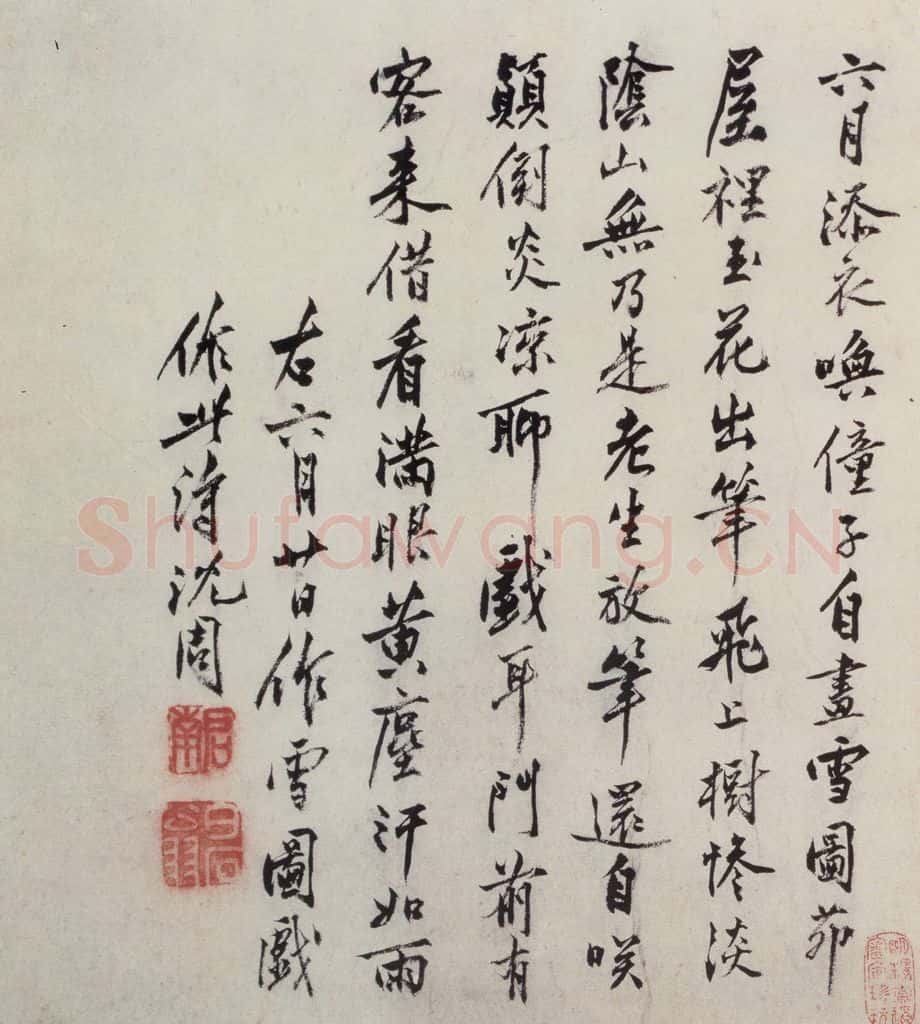 六月添衣喚僮子自畫雪圖茆
屋裡玉花出筆飛上樹慘淡
陰山無乃是老生放筆還自咲
顛倒炎涼聊戲耳門前有
客来借看滿眼黃塵汗如雨
右六月廿日作雪圖戲
作此詩沈周
啟南
白石翁
Shufawang.CN